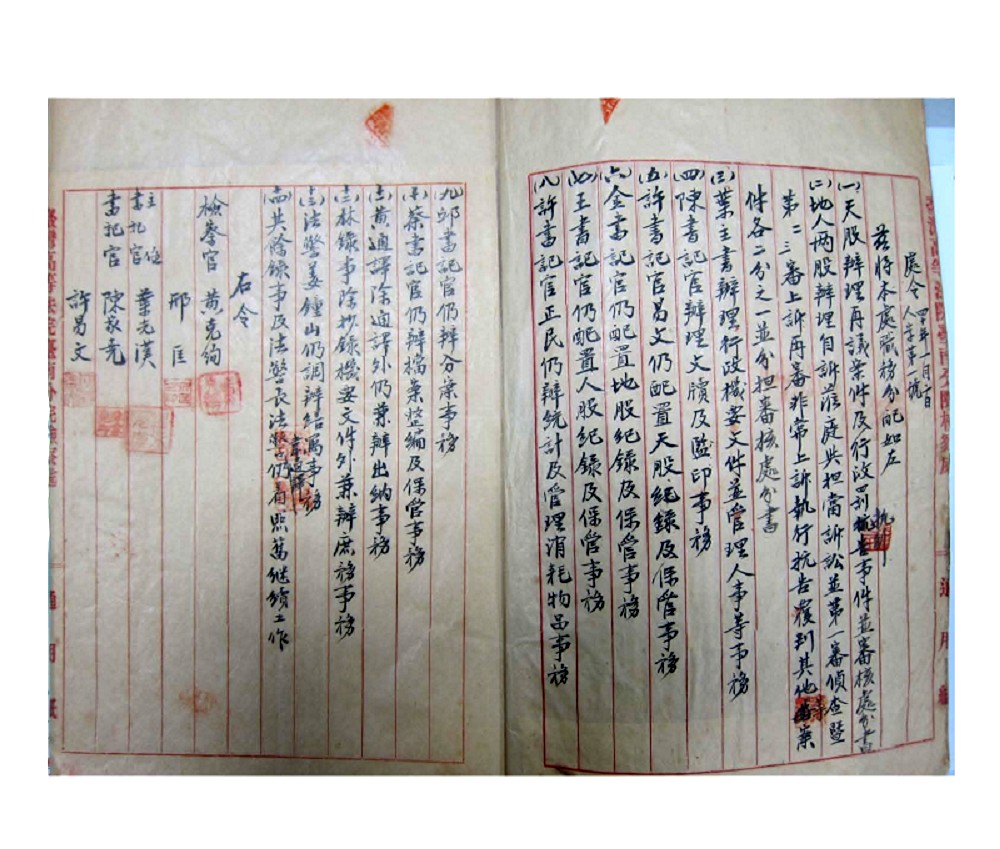 處令
人字第一號
茲將本處職務分配如左
(一)天股辦理再議案件及行政罰抗告事件並審核處分書
(二)地人两股辦理自訴蒞庭與担當訴訟並第一審偵查暨
第二三審上訴再審非常上訴執行抗告覆判其他案
件各二分之一並分担審核處分書
(三)葉主書辦理行政機要文件並管理人事等事務
(四)陳書記官辦理文牘及監印事務
(五)許書記官昌文仍配置天股紀錄及保管事務
(六)金書記官仍配置地股紀錄及保管事務
(七)王書記官仍配置人股紀錄及保管事務
(八)許書記官正民仍辦統計及管理消耗物品事務
(九)邱書記官仍辦分案事務
(十)蔡書記官仍辦檔案整編及保管事務
(十一)黃通譯除通譯外仍兼辦出納事務
(十二)林錄事除抄錄機要文件外兼辦庶務事務
(十三)法警姜鐘山仍調辦結屬事務
(十四)其餘錄事及法警長法警仍看照舊継續工作
右令
檢察官 黃克絢
邢匡
主任書記官 葉光漢
書記官 陳
許昌文